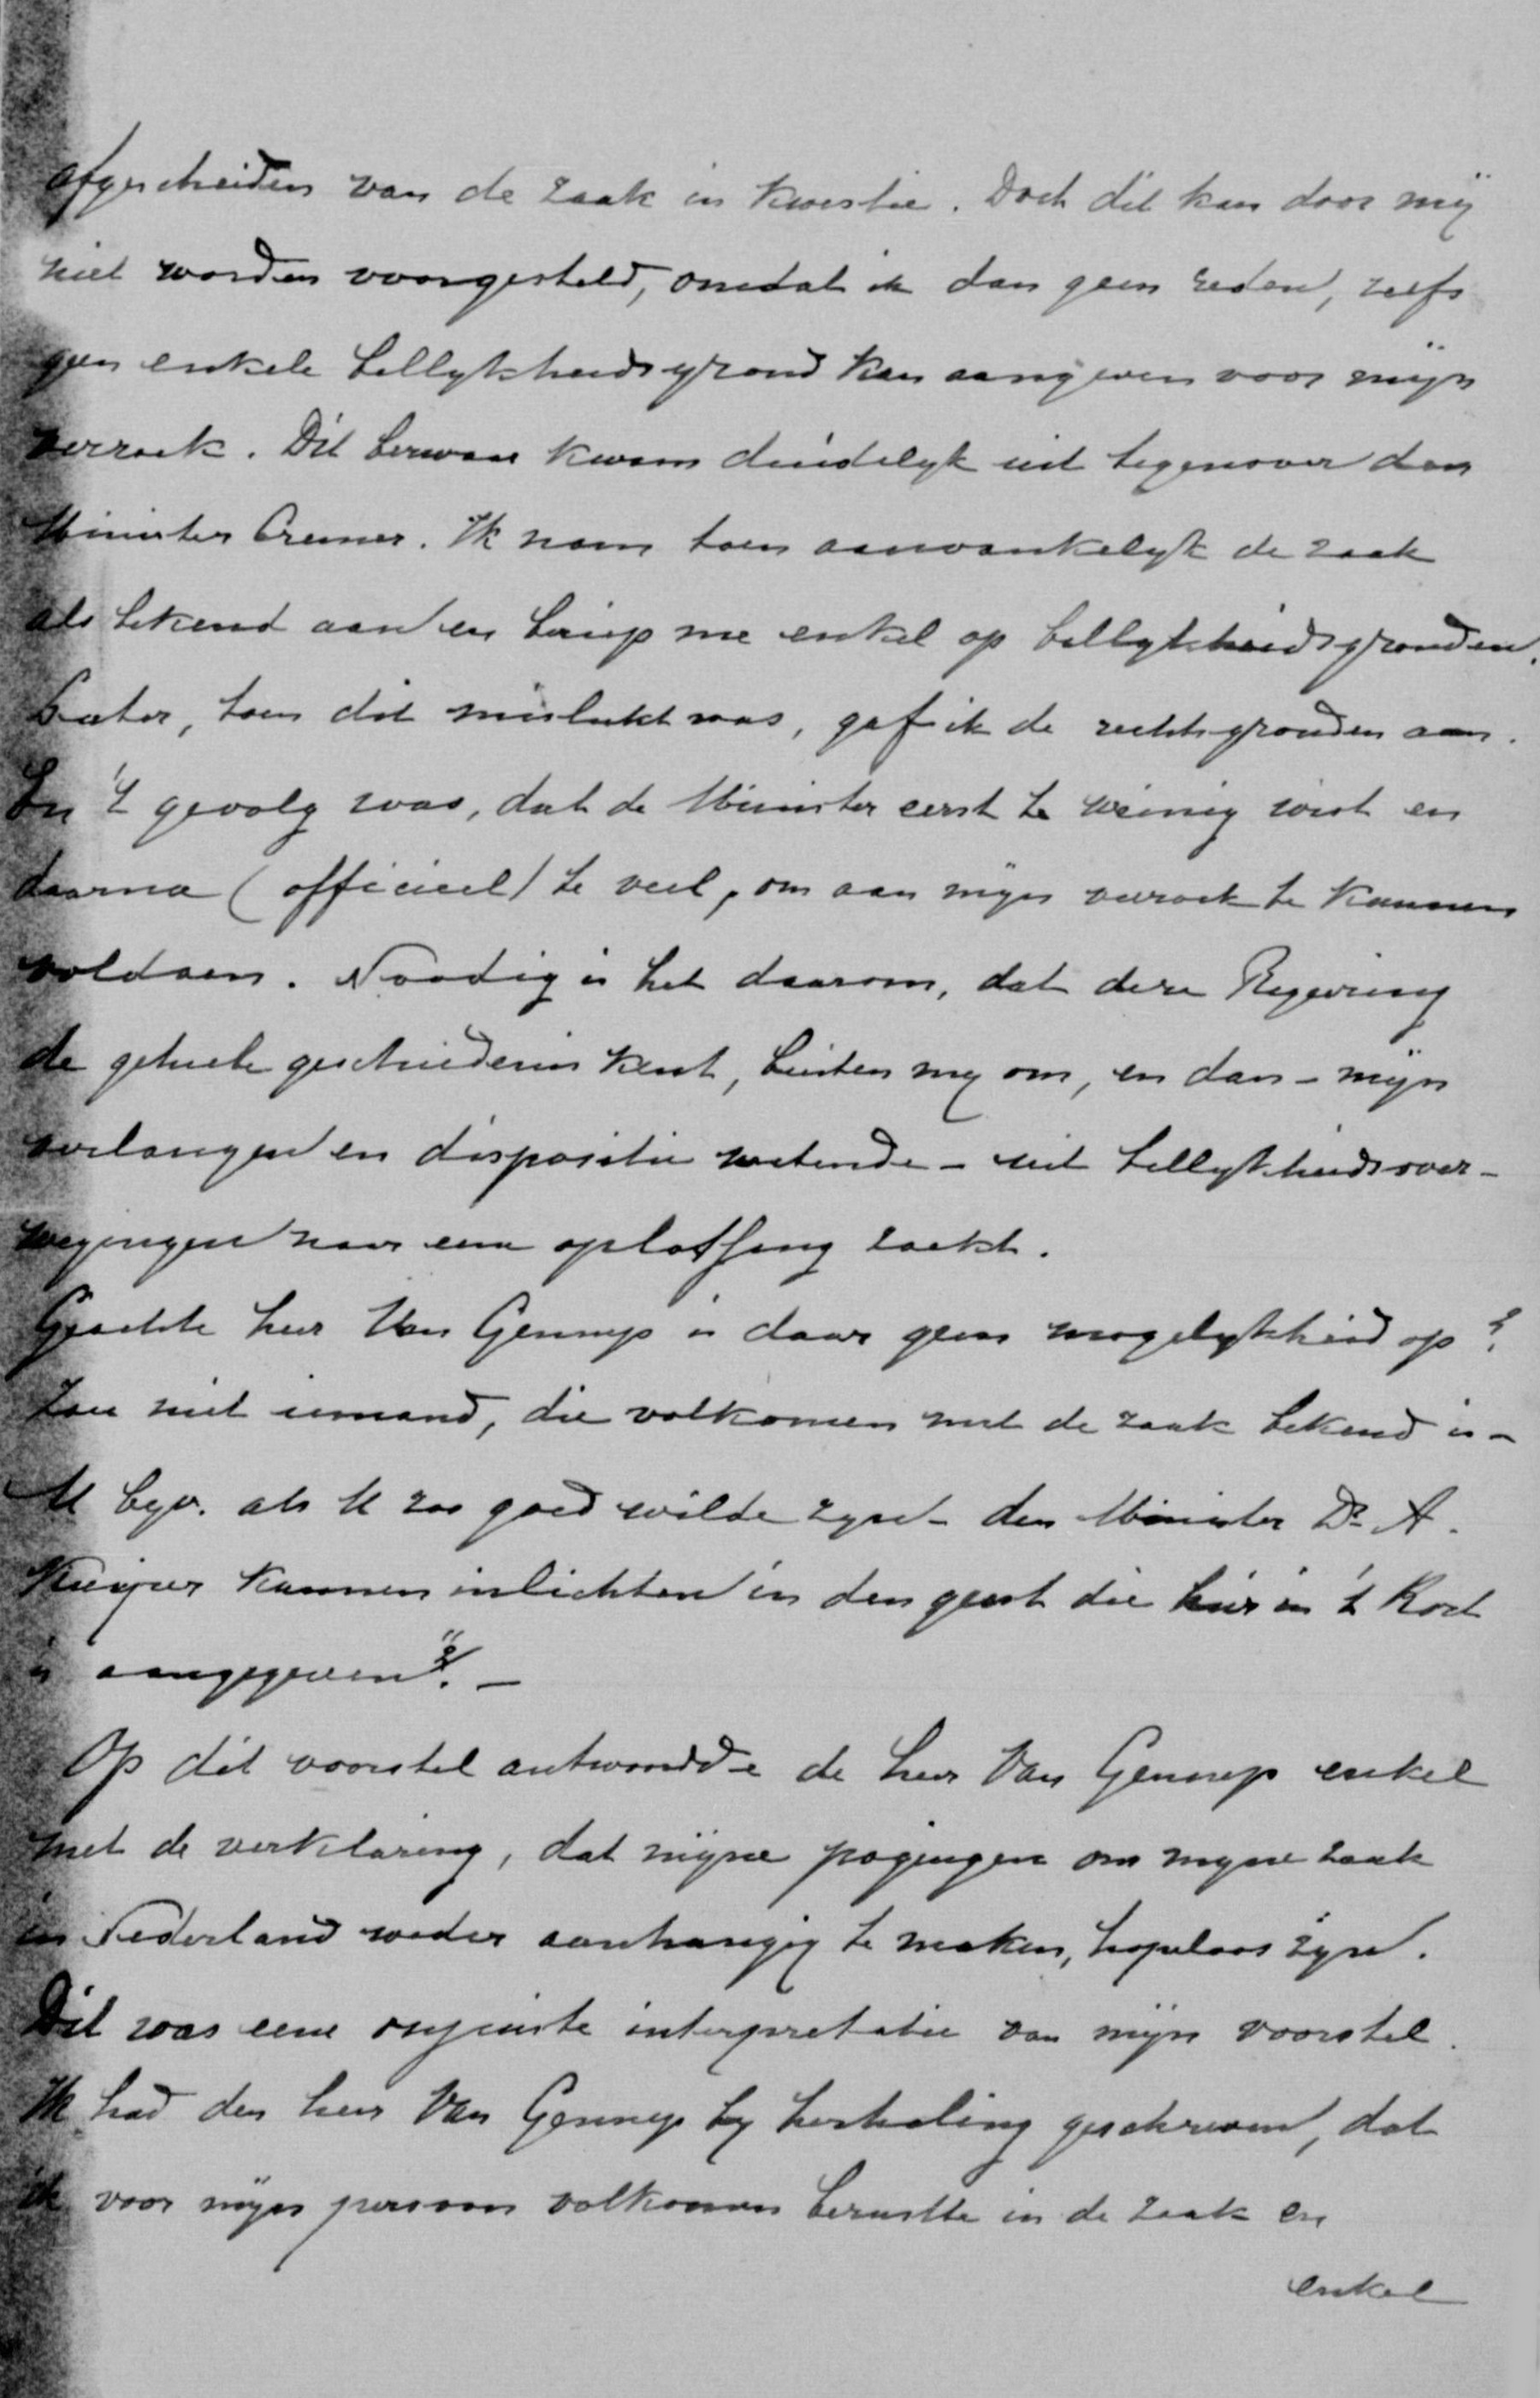 afgescheiden van de zaak in kwestie. Doch dit kan door mij
niet worden voorgesteld, omdat ik dan geen reden, zelfs
geen enkele billykheidsgrond kan aangeven voor mijn
verzoek. Dit bezwaar kwam duidelyk uit tegenover den
Minister Cremer. Ik nam toen aanvankelyk de zaak
als bekend aan en beriep me enkel op billykheidsgronden.
Later, toen dit mislukt was, gaf ik de rechtsgronden aan.
En 't gevolg was, dat de Minister eerst te weinig wist en
daarna (officieel) te veel, om aan mijn verzoek te kunnen
voldoen. Noodig is het daarom, dat deze Regeering
de geheele geschiedenis kent, buiten my om, en dan - mijn
verlangen en dispositie wetende - uit billykheidsover-
wegingen naar eene oplossing zoekt.
Geachte heer Van Gennep is daar geen mogelykheid op?
Zou niet iemand, die volkomen met de zaak bekend is -
U byv. als U zoo goed wilde zyn - den Minister Dr. A.
Kuijper kunnen inlichten in den geest die hier in 't kort
is aangegeven"?. -
Op dit voorstel antwoordde de heer Van Gennep enkel
met de verklaring, dat mijne pogingen om myne zaak
in Nederland weder aanhangig te maken, hopeloos zyn.
Dit was eene onjuiste interpretatie van mijn voorstel.
Ik had den heer Van Gennep by herhaling geschreven, dat
ik voor mijn persoon volkomen berustte in de zaak en
enkel